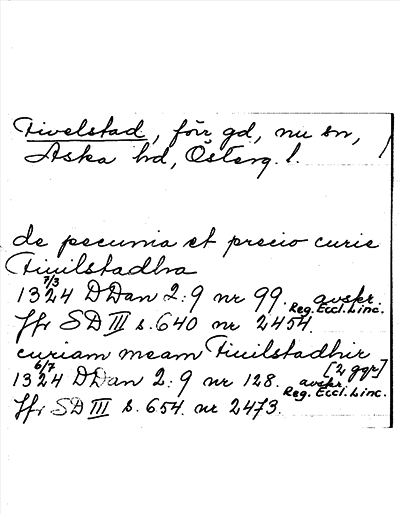 Tivelstad, förr gd, nu sn,
Aska hd, Österg. l.
de pecunia et precio curie
Tiuilstadhra
7/3
1324 DDan 2:9 nr 99. avskr.
Reg. Eccl. Linc.
Jfr SD III s. 640 nr 2454.
curiam meam Tiuilstadhir
[2 ggr]
6/7
1324 DDan 2:9 nr 128. avskr.
Reg. Eccl. Linc.
Jfr SD III s. 654. nr 2473.